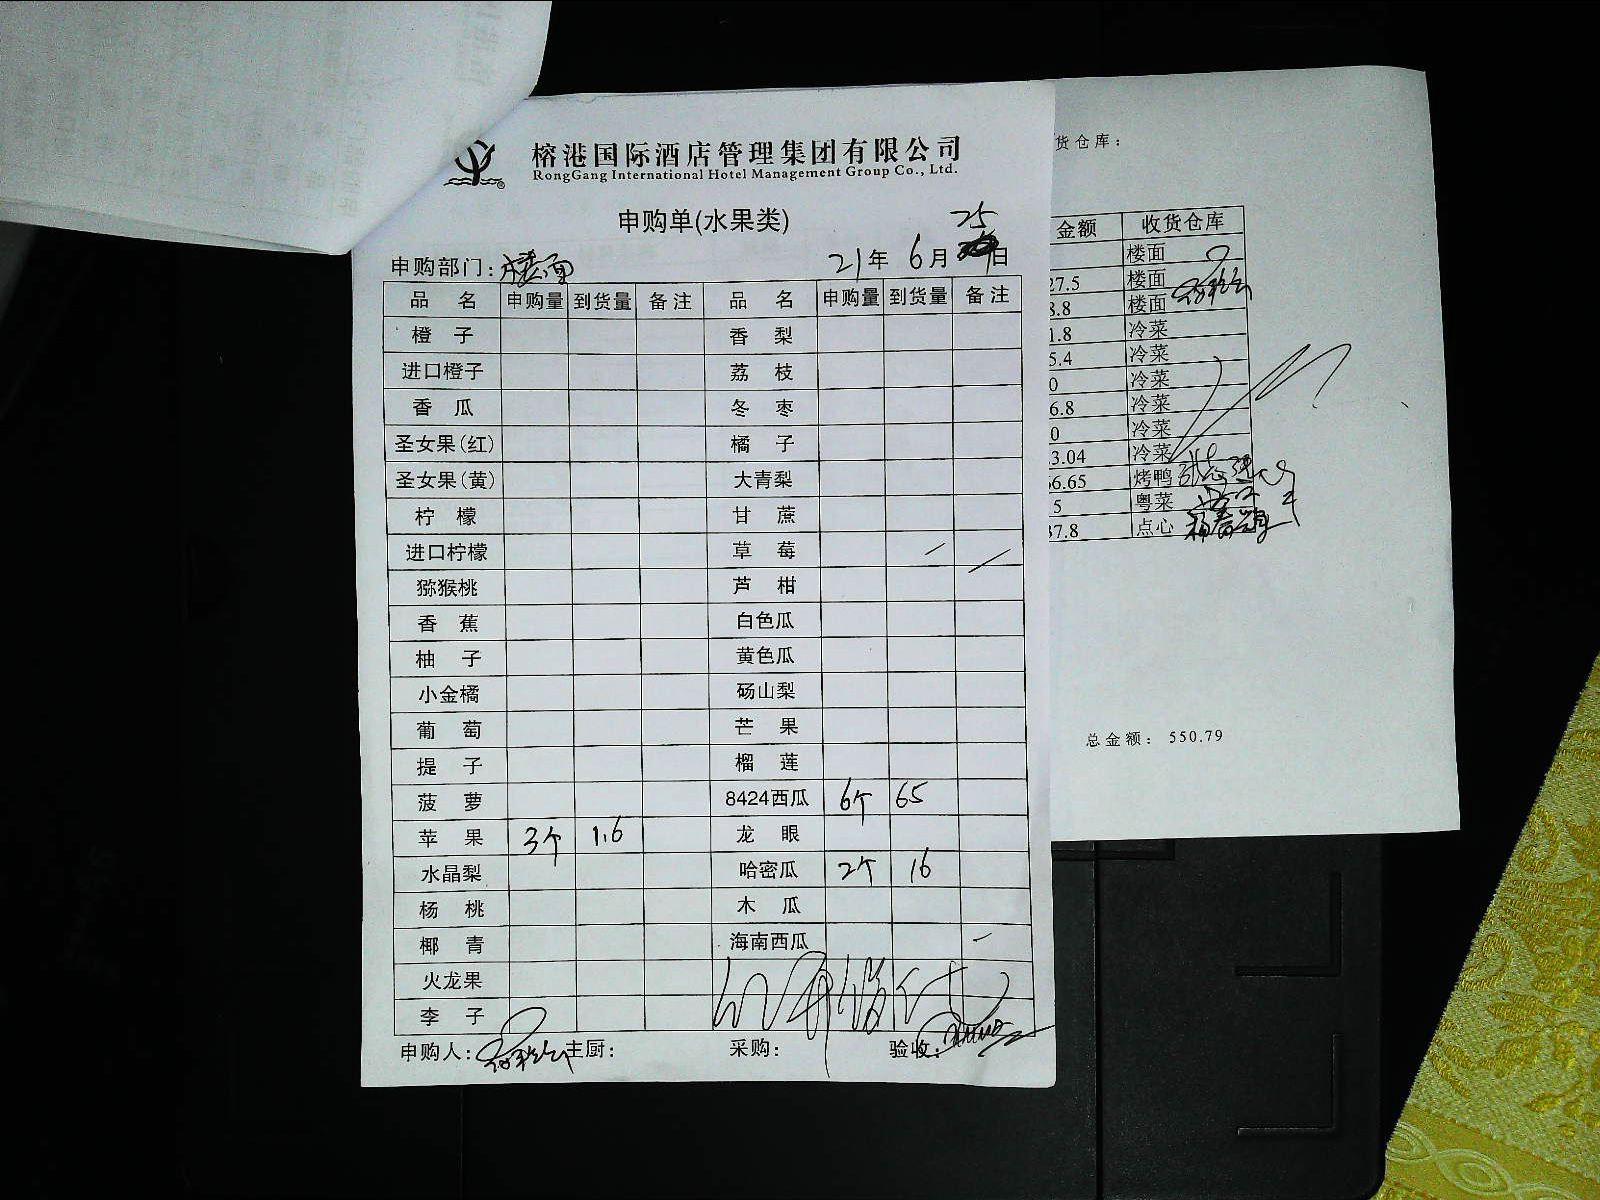 榕港国际酒店管理集团有限公司
RongGang International Hotel Management Group Co., Ltd.
申购单(水果类)
25
申购部门：楼面 21年 6月 日
品 名 申购量 到货量 备注 品 名 申购量 到货量 备注
橙 子 香 梨
进口橙子 荔 枝
香 瓜 冬 枣
圣女果(红) 橘 子
圣女果(黄) 大青梨
柠 檬 甘 蔗
进口柠檬 草 莓
猕猴桃 芦 柑
香 蕉 白色瓜
柚 子 黄色瓜
小金橘 砀山梨
葡 萄 芒 果
提 子 榴 莲
菠 萝 8424西瓜 6个 65
苹 果 3个 1.6 龙 眼
水晶梨 哈密瓜 2个 16
杨 桃 木 瓜
椰 青 海南西瓜
火龙果
李 子
申购人： 主厨： 采购： 验收：
货仓库：
金额 收货仓库
楼面
27.5 楼面
8.8 楼面
1.8 冷菜
5.4 冷菜
0 冷菜
6.8 冷菜
0 冷菜
3.04 冷菜
66.65 烤鸭
5 粤菜
37.8 点心
总金额： 550.79